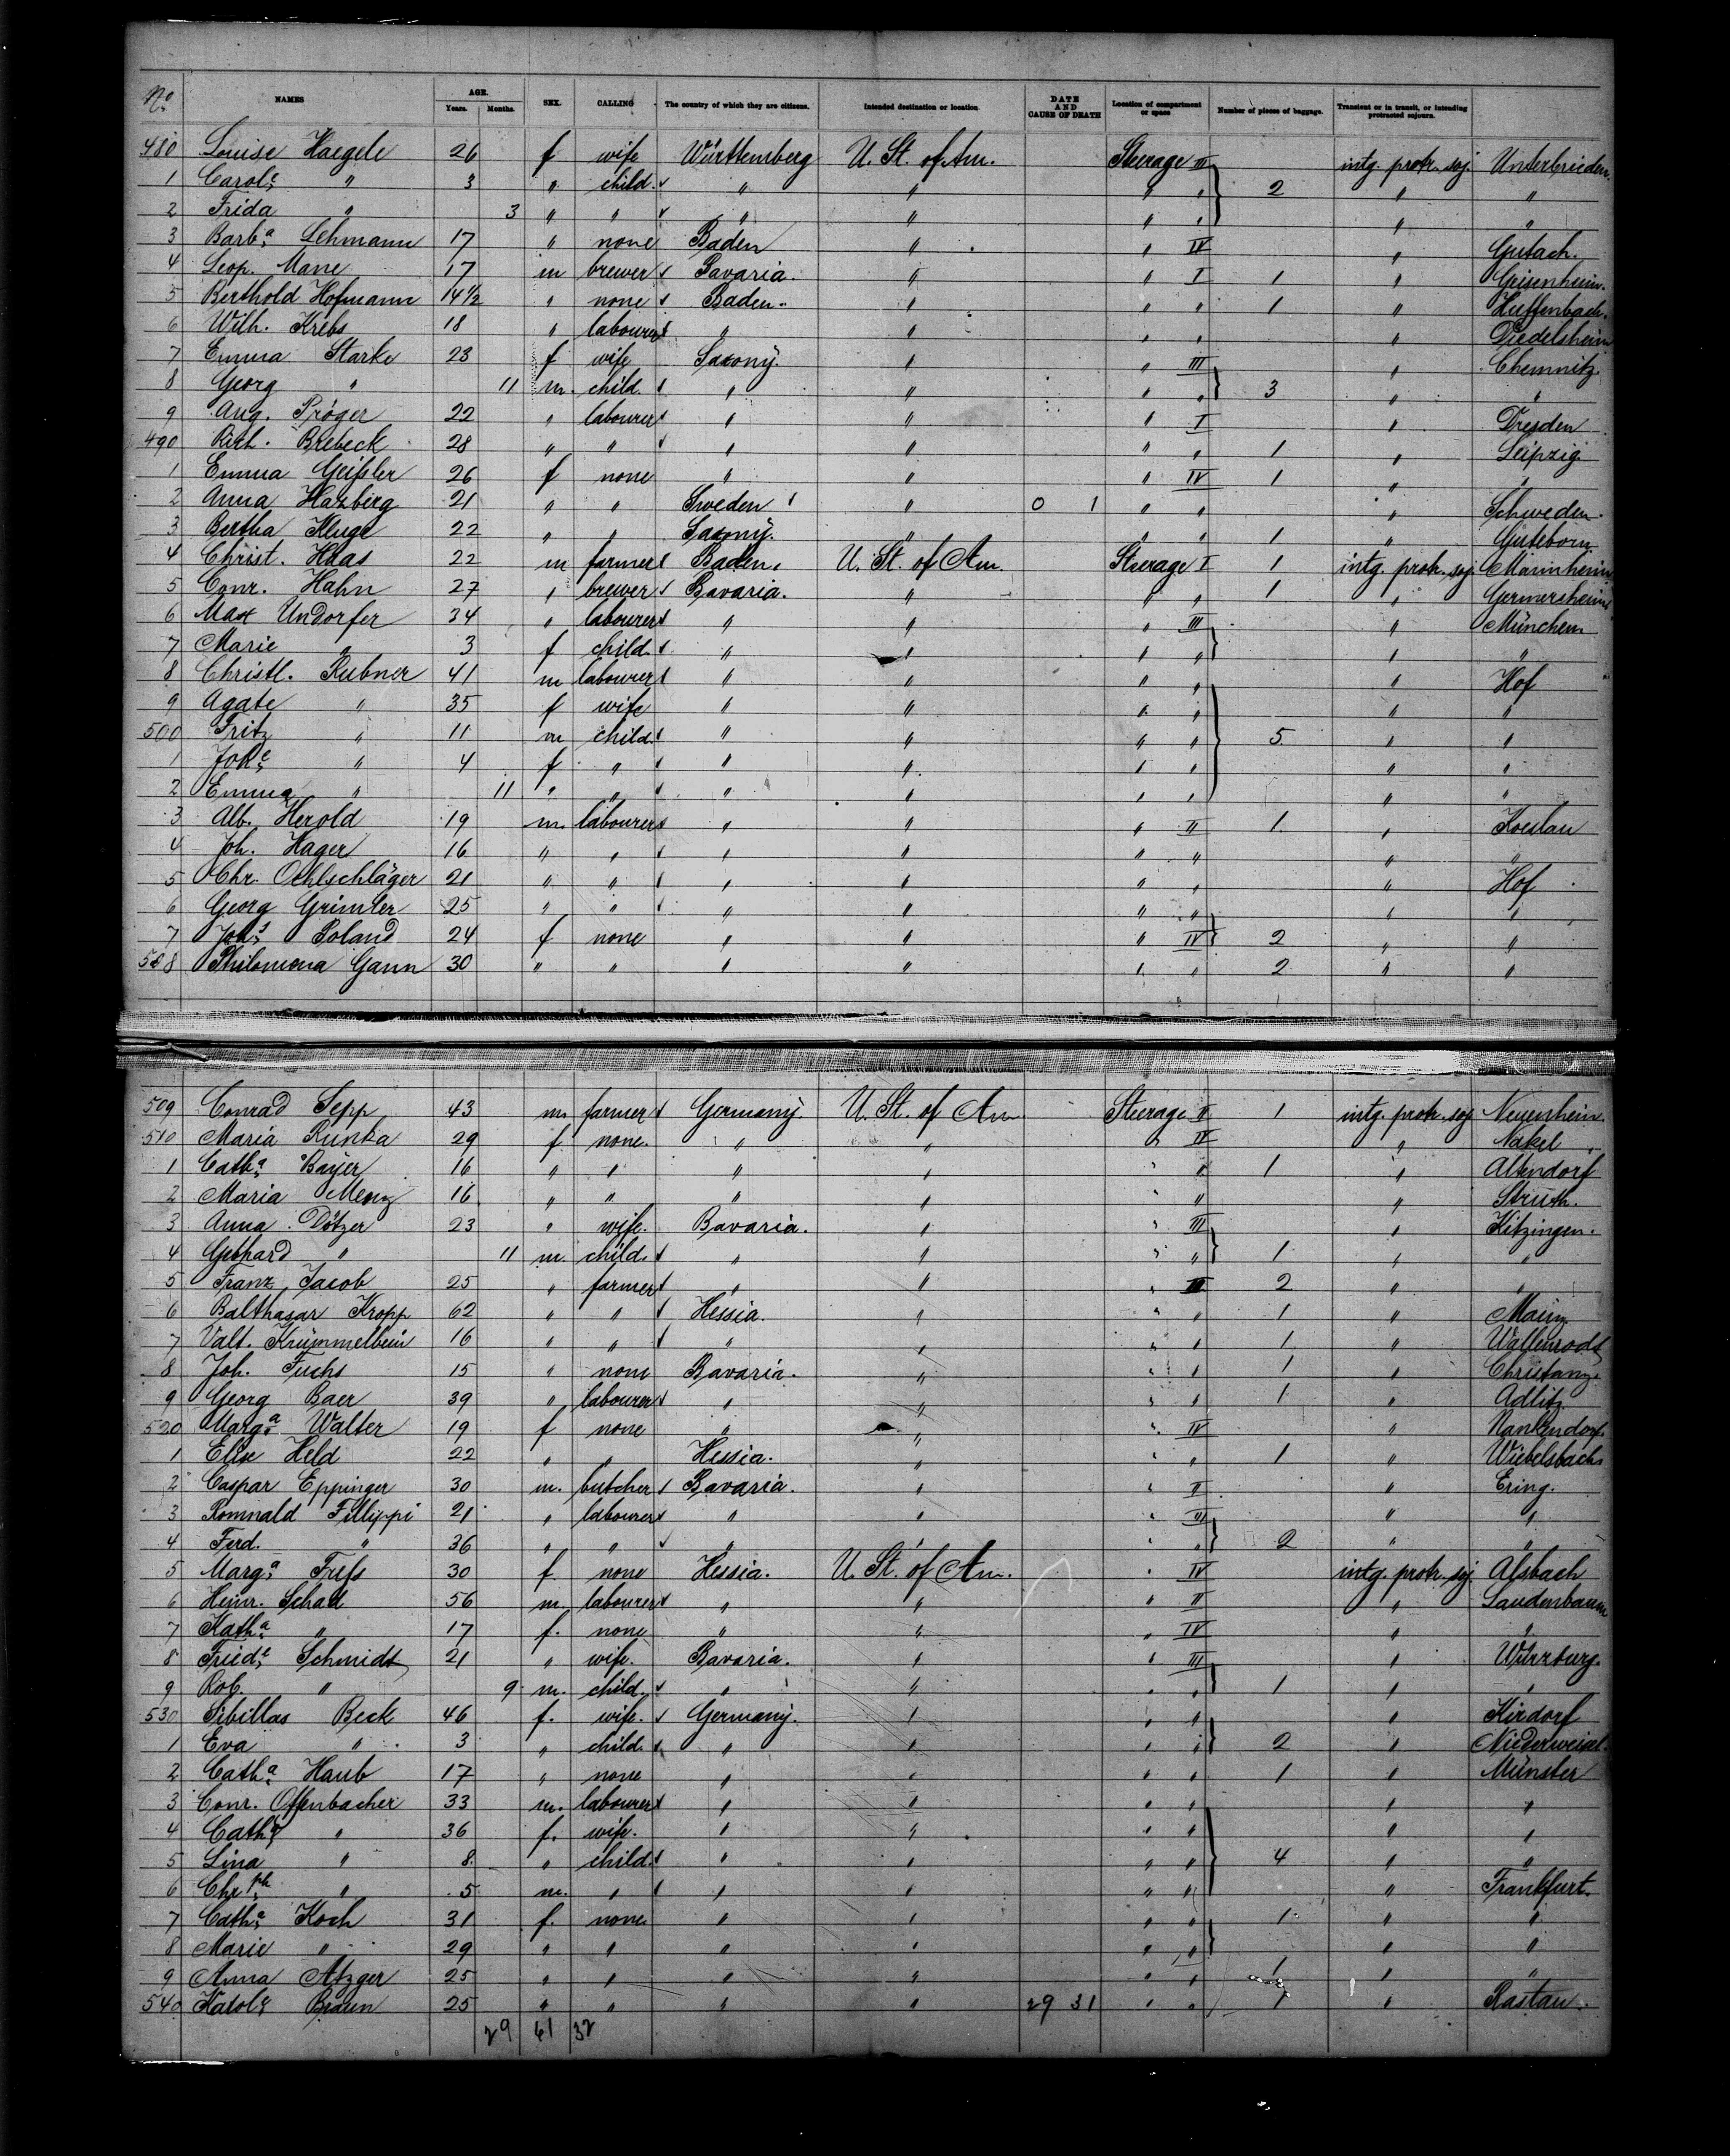 No NAMES AGE. Years. Months. SEX. CALLING The country of which they are citizens. Intended destination or location. DATE AND CAUSE OF DEATH Location of compartment or space Number of pieces of baggage. Transient or in transit, or intending protracted sojourn.
480 Louise Haegele 26 f wife Württemberg U. St. of Am. Steerage III intg. protr. soj. Unterbrieden
1 Carole " 3 " child " " " " 2 " "
2 Frida " 3 " " " " " " " "
3 Barba Lehmann 17 " none Baden " " IV " Gutach.
4 Leop. Mane 17 m brewer Bavaria. " " I 1 " Geisenheim.
5 Berthold Hofmann 14½ " none Baden " " " 1 " Huffenbach.
6 Wilh. Krebs 18 " labourer " " " " " Diedelsheim
7 Emma Starke 23 f wife Saxony. " " III " Chemnitz
8 Georg " 11 m. child " " " " 3 " "
9 Aug. Pröger 22 " labourer " " " I " Dresden
490 Rich. Brebeck 28 " " " " " " 1 " Leipzig
1 Emma Geißler 26 f none " " " IV 1 " "
2 Anna Hazberg 21 " " Sweden " 0 1 " " " Schweden
3 Bertha Kluge 22 " " Saxony. " " " 1 " Güteborn
4 Christ. Haas 22 m farmer Baden. U. St. of Am. Steerage I 1 intg. protr. soj. Mannheim
5 Conr. Hahn 27 " brewer Bavaria. " " " 1 " Germersheim
6 Max Undorfer 34 " labourer " " " III " München
7 Marie " 3 f child " " " " " "
8 Christl. Rubner 41 m labourer " " " " " Hof
9 Agate " 35 f wife " " " " " "
500 Fritz " 11 m child " " " " 5. " "
1 Johe " 4 f " " " " " " "
2 Emma " 11 " " " " " " " "
3 Alb. Herold 19 m. labourer " " " II 1. " Koeslau
4 Joh. Hager 16 " " " " " " " "
5 Chr. Oehlschläger 21 " " " " " " " Hof
6 Georg Grimler 25 " " " " " " " "
7 Joha Poland 24 f none " " " IV 2 " "
508 Philomena Gann 30 " " " " " " 2 " "
509 Conrad Sepp 43 m. farmer Germany. U. St. of Am Steerage II 1 intg. protr. soj Neuenheim.
510 Maria Runka 29 f none. " " " IV " Nakel
1 Catha Bayer 16 " " " " " " 1 " Altendorf
2 Maria Menz 16 " " " " " " " Struth.
3 Anna Dötzer 23 " wife. Bavaria. " " III " Kitzingen.
4 Gebhard " 11 m. child. " " " " 1 " "
5 Franz Jacob 25 " farmer " " " II 2 " "
6 Balthasar Kropp 62 " " Hessia. " " " 1 " Mainz.
7 Valt. Krümmelbein 16 " " " " " " 1 " Wallenrodt
8 Joh. Fuchs 15 " none Bavaria. " " " 1 " Christanz.
9 Georg Baer 39 " labourer " " " " 1 " Adlitz
520 Marga Walter 19 f none " " " IV " Nankendorf.
1 Elise Held 22 " " Hessia. " " " 1 " Wiebelsbach
2 Caspar Eppinger 30 m. butcher Bavaria. " " II " Ering.
3 Romnald Fillippi 21 " labourer " " " III " "
4 Ferd. " 36 " " " " " " 2 " "
5 Marga Treß 30 f none Hessia. U. St. of Am. " IV intg. protr. soj. Alsbach
6 Heinr. Schad 56 m. labourer " " " II " Laudenbaum
7 Katha " 17 f. none " " " IV " "
8 Friede Schmidt 21 " wife. Bavaria. " " III " Würzburg.
9 Rob. " 9 m. child. " " " " 1 " "
530 Sibillas Beck 46 f. wife. Germany. " " " " Kirdorf
1 Eva " 3 " child. " " " " 2 " Niederweisel.
2 Catha Haub 17 " none " " " " 1 " Münster
3 Conr. Offenbacher 33 m. labourer " " " " " "
4 Catha " 36 f. wife. " " " " " "
5 Lina " 8. " child. " " " " 4 " "
6 Chrph " 5 m. " " " " " " Frankfurt.
7 Catha Koch 31 f. none " " " " 1 " "
8 Marie " 29 " " " " " " " "
9 Anna Atzger 25 " " " " " " 1 " "
540 Karole Braun 25 " " " " 29 31 " " 1 " Rastau.
29 61 32